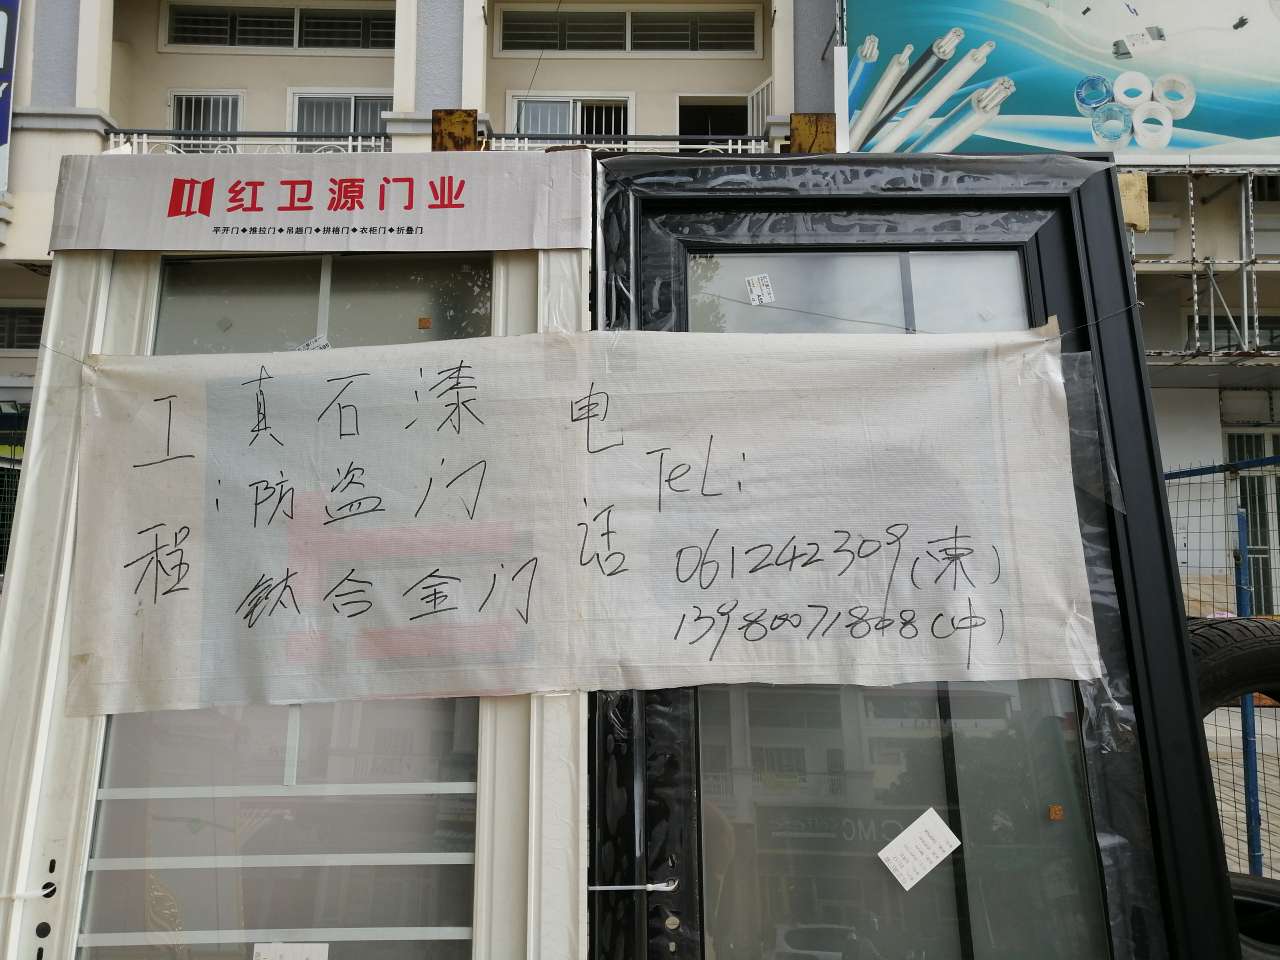 红卫源门业
平开门◆推拉门◆吊趟门◆拼格门◆衣柜门◆折叠门
工程:
真石漆
防盗门
钛合金门
电话
TeL:
061242309(東)
13980071808(中)
CMC